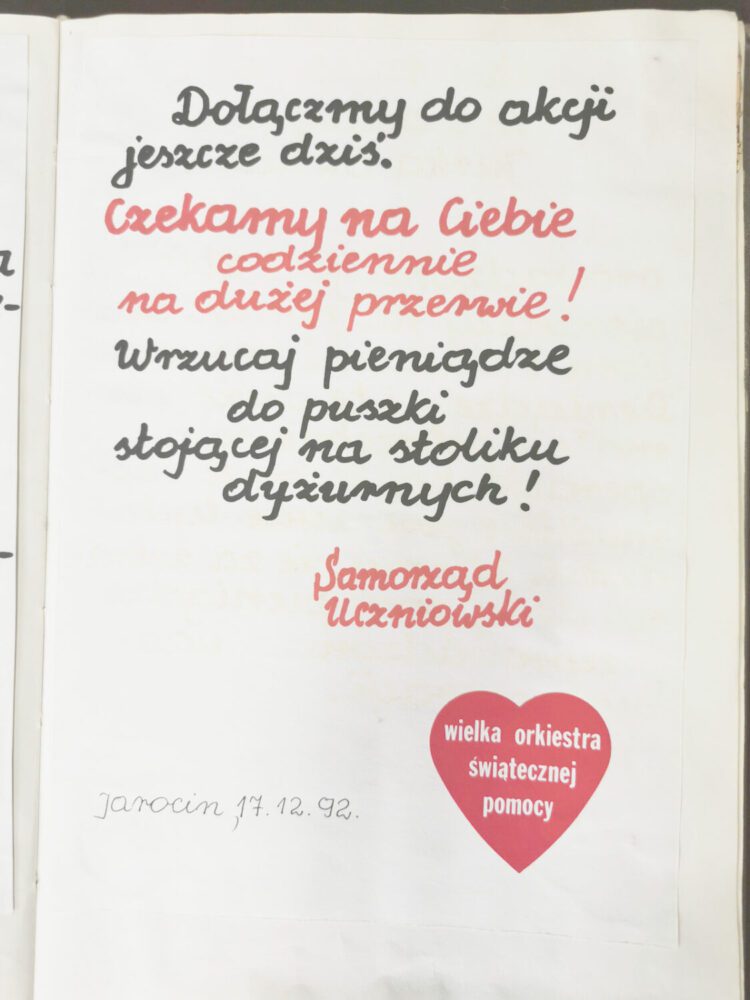 Dołączmy do akcji
jeszcze dziś.
Czekamy na Ciebie
codziennie
na dużej przerwie!
Wrzucaj pieniądze
do puszki
stojącej na stoliku
dyżurnych!
Samorząd
Uczniowski
wielka orkiestra
świątecznej
pomocy
Jarocin, 17.12.92.